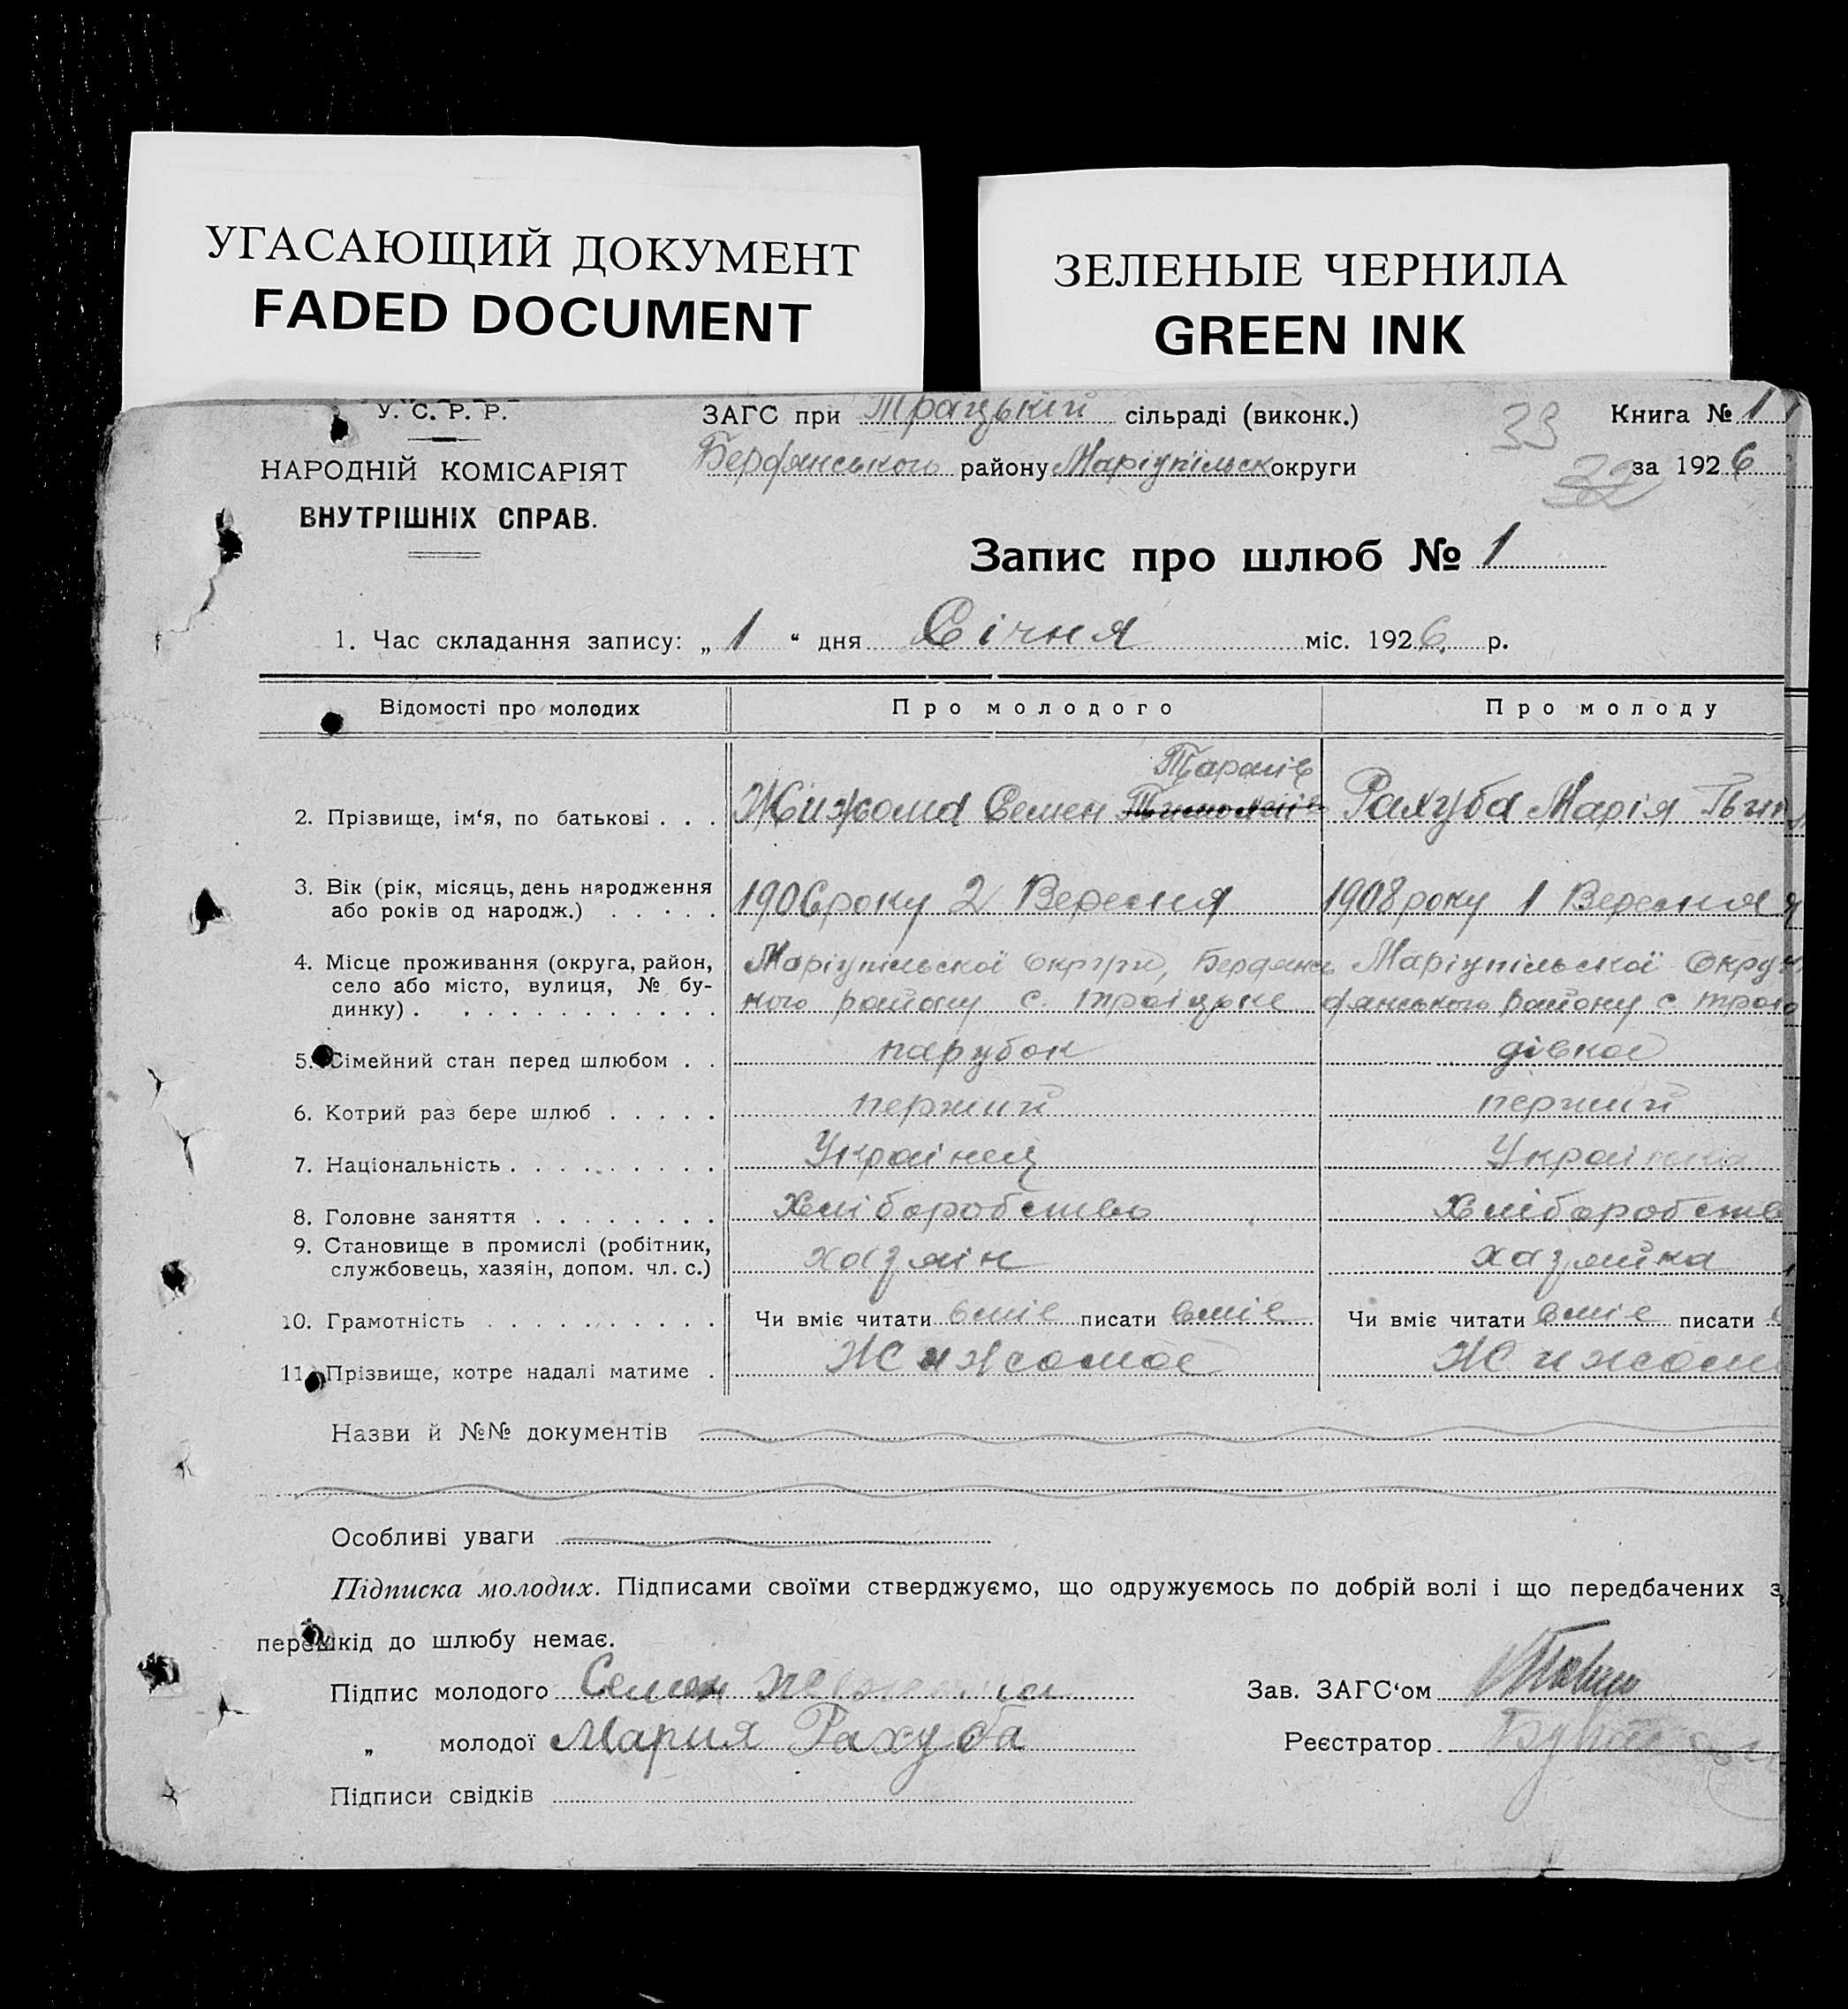 УГАСАЮЩИЙ ДОКУМЕНТ
FADED DOCUMENT
ЗЕЛЕНЫЕ ЧЕРНИЛА
GREEN INK
У. С. Р. Р.
НАРОДНІЙ КОМІСАРІЯТ
ВНУТРІШНІХ СПРАВ.
ЗАГС при Трацькій сільраді (виконк.)
Бердянського району Маріупільск округи
33
32
Книга № 1
за 1926
Запис про шлюб № 1
1. Час складання запису: „ 1 “ дня Січня міс. 1926. р.
Відомості про молодих Про молодого Про молоду
2. Прізвище, ім‘я, по батькові . . . Жижома Семен Рахуба Марія
3. Вік (рік, місяць, день народження 1906 року 2 Вересня 1908 року 1 Вересня
або років од народж.) . . . . .
4. Місце проживання (округа, район, Маріупільської Округи, Бердянсь Маріупільської Округ
село або місто, вулиця, № бу- кого району с. Троіцьке дянського Району с Трою
динку) . . . . . . . . . . . .
5. Сімейний стан перед шлюбом . . парубок дівка
6. Котрий раз бере шлюб . . . . . перший перший
7. Національність . . . . . . . . . Украінец Украінка
8. Головне заняття . . . . . . . . Хліборобство Хліборобств
9. Становище в промислі (робітник, хазяін хазяйка
службовець, хазяін, допом. чл. с.)
10. Грамотність . . . . . . . . . . Чи вміє читати вміє писати вміє Чи вміє читати вміє писати
11. Прізвище, котре надалі матиме . Жижома Жижом
Назви й №№ документів
Особливі уваги
Підписка молодих. Підписами своїми стверджуємо, що одружуємось по добрій волі і що передбачених з
перешкід до шлюбу немає.
Підпис молодого Семен
„ молодої Мария Рахуба
Підписи свідків
Зав. ЗАГС‘ом
Реєстратор